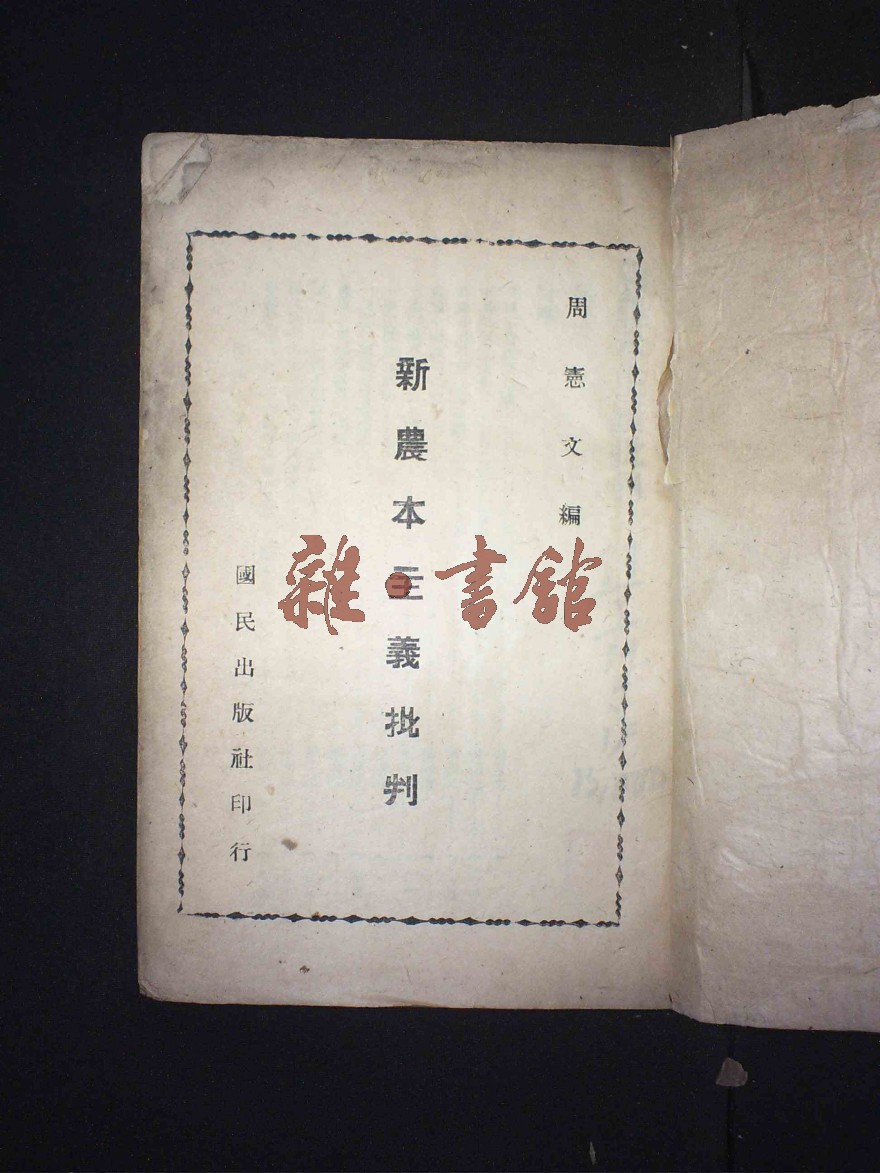 周憲文編
新農本主義批判
國民出版社印行
雜·書館